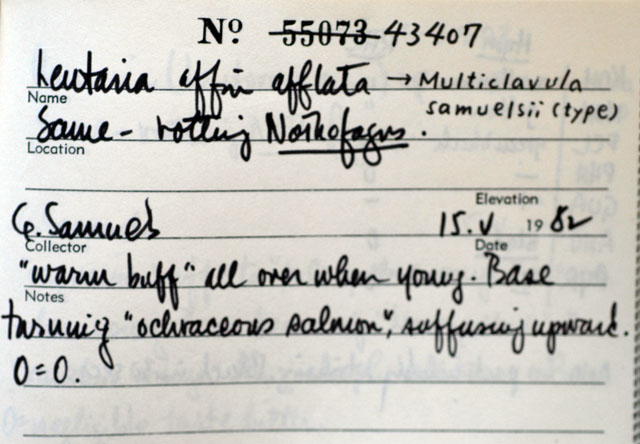 Nº 55073 43407
Lentaria affin afflata → Multiclavula
samuelsii (type)
Name
Same - rotting Nothofagus.
Location
Elevation
G. Samuels 15. V 1982
Collector Date
"warm buff" all over when young. Base
Notes
turning "ochraceous salmon", suffusing upward.
O=O.